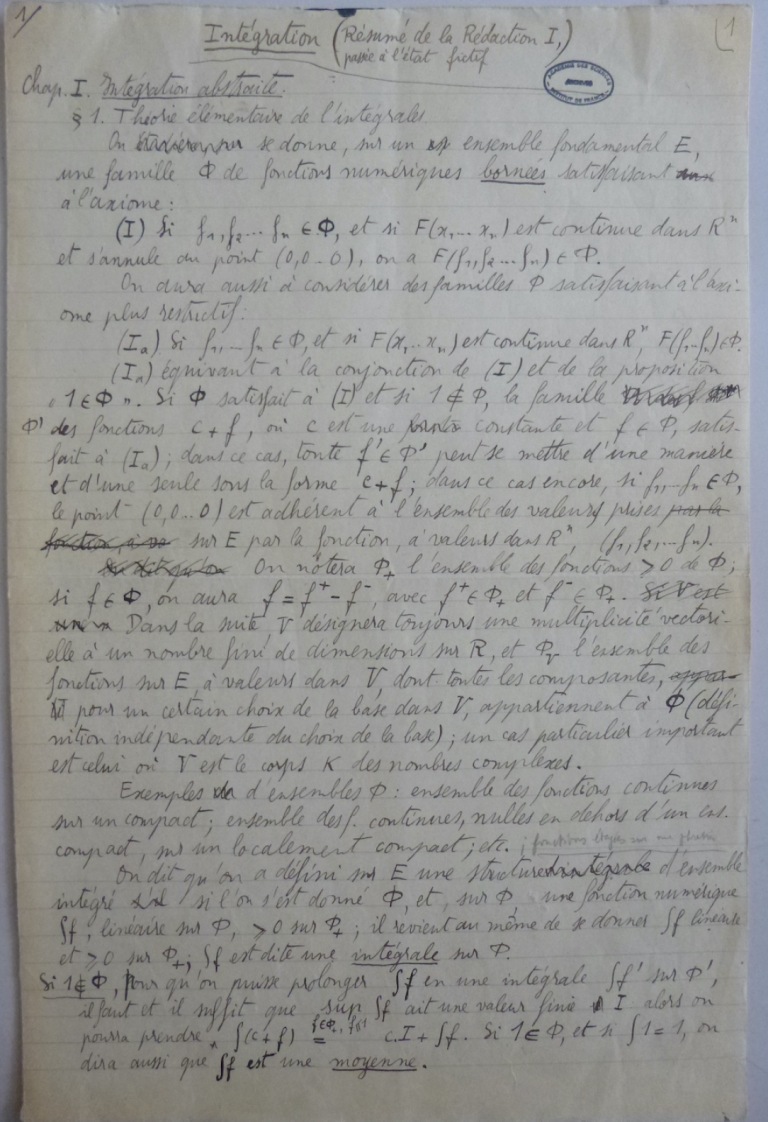 1/
1
Intégration (Résumé de la Rédaction I,)
passée à l'état fictif
ACADEMIE DES SCIENCES
ARCHIVES
INSTITUT DE FRANCE
Chap. I. Intégration abstraite.
§ 1. Théorie élémentaire de l'intégrales
On se donne, sur un ensemble fondamental E,
une famille Φ de fonctions numériques bornées satisfaisant
à l'axiome :
(I) Si f₁, f₂ ... fₙ ∈ Φ, et si F(x₁, ... xₙ) est continue dans Rⁿ
et s'annule au point (0,0 .. 0), on a F(f₁, f₂ ... fₙ) ∈ Φ.
On aura aussi à considérer des familles Φ satisfaisant à l'axi-
ome plus restrictif :
(Iₐ) Si f₁, ... fₙ ∈ Φ, et si F(x₁ ... xₙ) est continue dans Rⁿ, F(f₁ .. fₙ) ∈ Φ.
(Iₐ) équivaut à la conjonction de (I) et de la proposition
« 1 ∈ Φ ». Si Φ satisfait à (I) et si 1 ∉ Φ, la famille
Φ' des fonctions c + f, où c est une constante et f ∈ Φ, satis-
fait à (Iₐ) ; dans ce cas, toute f' ∈ Φ' peut se mettre d'une manière
et d'une seule sous la forme c + f ; dans ce cas encore, si f₁, ... fₙ ∈ Φ,
le point (0,0 .. 0) est adhérent à l'ensemble des valeurs prises par la
fonction, à va sur E par la fonction, à valeurs dans Rⁿ, (f₁, f₂, ... fₙ).
On notera Φ₊ l'ensemble des fonctions ⩾ 0 de Φ ;
si f ∈ Φ, on aura f = f⁺ - f⁻, avec f⁺ ∈ Φ₊ et f⁻ ∈ Φ₊. Si V est
Dans la suite, V désignera toujours une multiplicité vectori-
elle à un nombre fini de dimensions sur R, et Φᵥ l'ensemble des
fonctions sur E, à valeurs dans V, dont toutes les composantes, appar-
pour un certain choix de la base dans V, appartiennent à Φ (défi-
nition indépendante du choix de la base) ; un cas particulier important
est celui où V est le corps K des nombres complexes.
Exemples d'ensembles Φ : ensemble des fonctions continues
sur un compact ; ensemble des f. continues, nulles en dehors d'un ens.
compact, sur un localement compact ; etc. ; fonctions étagées sur un
On dit qu'on a défini sur E une structure d'intégrale d'ensemble
intégré si l'on s'est donné Φ, et, sur Φ, une fonction numérique
∫f, linéaire sur Φ, ⩾ 0 sur Φ₊ ; il revient au même de se donner ∫f linéaire
et ⩾ 0 sur Φ₊ ; ∫f est dite une intégrale sur Φ.
Si 1 ∉ Φ, pour qu'on puisse prolonger ∫f en une intégrale ∫f' sur Φ',
il faut et il suffit que sup ∫f ait une valeur finie I alors on
f∈Φ₊, f≤1
pourra prendre ∫(c + f) = c.I + ∫f. Si 1 ∈ Φ, et si ∫1 = 1, on
dira aussi que ∫f est une moyenne.